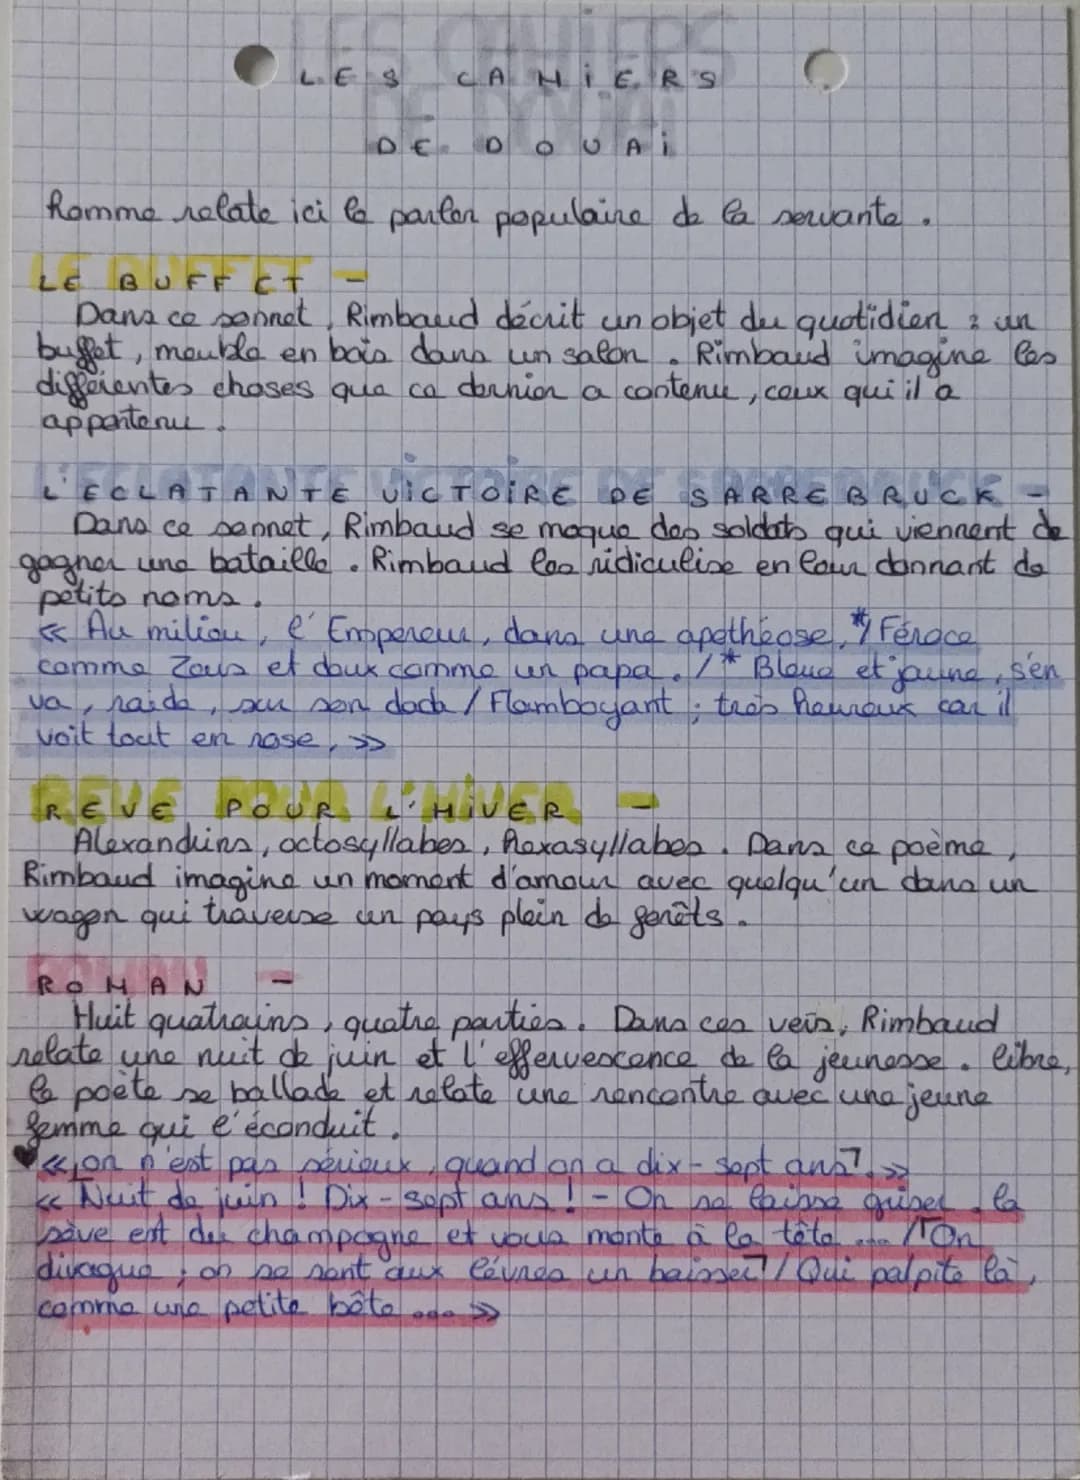 LES CAHiERS
DE DOUAi
Romme relate ici le parler populaire de la servante.
LE BUFFET -
Dans ce sonnet, Rimbaud décrit un objet du quotidien : un
buffet, meuble en bois dans un salon. Rimbaud imagine les
différentes choses que ce dernier a contenu, ceux qui il a
appartenu.
L'ECLATANTE ViCTOiRE DE SARREBRUCK -
Dans ce sonnet, Rimbaud se moque des soldats qui viennent de
gagner une bataille. Rimbaud les ridiculise en leur donnant de
petits noms.
« Au milieu, l'Empereur, dans une apothéose, */ Féroce
comme Zeus et doux comme un papa. /* Bleue et jaune, s'en
va, raide, sur son dada / Flamboyant ; très heureux car il
voit tout en rose, »
REVE POUR L'HiVER -
Alexandrins, octosyllabes, hexasyllabes. Dans ce poème,
Rimbaud imagine un moment d'amour avec quelqu'un dans un
wagon qui traverse un pays plein de genêts.
ROMAN -
Huit quatrains, quatre parties. Dans ces vers, Rimbaud
relate une nuit de juin et l'effervescence de la jeunesse. libre,
le poète se ballade et relate une rencontre avec une jeune
femme qui l'éconduit.
« on n'est pas sérieux, quand on a dix-sept ans. »
« Nuit de juin ! Dix-sept ans ! - On se laisse griser. la
sève est du champagne et vous monte à la tête ... / On
divague ; on se sent aux lèvres un baiser / Qui palpite là,
comme une petite bête ... »